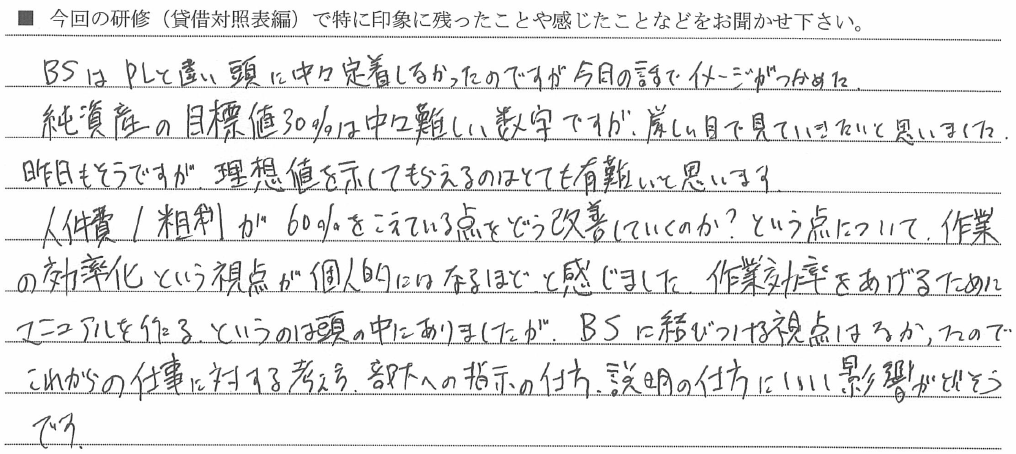 ■ 今回の研修（貸借対照表編）で特に印象に残ったことや感じたことなどをお聞かせ下さい。
BSはPLと違い頭に中々定着しなかったのですが今日の話でイメージがつかめた。
純資産の目標値30%は中々難しい数字ですが、厳しい目で見ていきたいと思いました。
昨日もそうですが、理想値を示してもらえるのはとても有難いと思います。
人件費/粗利が60%をこえている点をどう改善していくのか？という点について、作業
の効率化という視点が個人的にはなるほどと感じました。作業効率をあげるために
マニュアルを作る、というのは頭の中にありましたが、BSに結びつける視点はなかったので
これからの仕事に対する考え方、部下への指示の仕方、説明の仕方にいい影響がでそう
です。